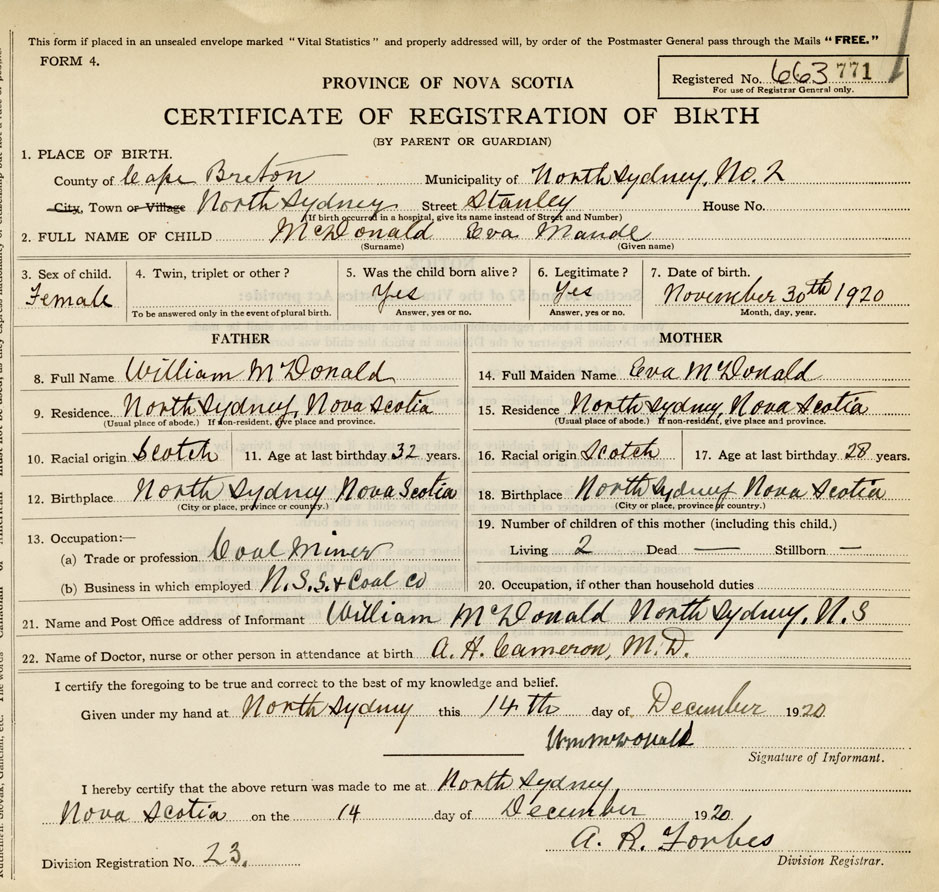 This form if placed in an unsealed envelope marked "Vital Statistics" and properly addressed will, by order of the Postmaster General pass through the Mails "FREE."
FORM 4.
Registered No. 663 771
For use of Registrar General only.
PROVINCE OF NOVA SCOTIA
CERTIFICATE OF REGISTRATION OF BIRTH
(BY PARENT OR GUARDIAN)
1. PLACE OF BIRTH.
County of Cape Breton Municipality of North Sydney, No. 2
City, Town or Village North Sydney Street Stanley House No.
(If birth occurred in a hospital, give its name instead of Street and Number)
2. FULL NAME OF CHILD McDonald Eva Maude
(Surname) (Given name)
3. Sex of child. 4. Twin, triplet or other? 5. Was the child born alive? 6. Legitimate? 7. Date of birth.
Female Yes Yes November 30th 1920
To be answered only in the event of plural birth. Answer, yes or no. Answer, yes or no. Month, day, year.
FATHER
8. Full Name William McDonald
9. Residence. North Sydney, Nova Scotia
(Usual place of abode.) If non-resident, give place and province.
10. Racial origin Scotch 11. Age at last birthday 32 years.
12. Birthplace North Sydney Nova Scotia
(City or place, province or country.)
13. Occupation:—
(a) Trade or profession Coal Miner
(b) Business in which employed N.S.S. & Coal Co
MOTHER
14. Full Maiden Name Eva McDonald
15. Residence North Sydney, Nova Scotia
(Usual place of abode.) If non-resident, give place and province.
16. Racial origin Scotch 17. Age at last birthday 28 years.
18. Birthplace North Sydney Nova Scotia
(City or place, province or country.)
19. Number of children of this mother (including this child.)
Living 2 Dead — Stillborn —
20. Occupation, if other than household duties
21. Name and Post Office address of Informant William McDonald North Sydney, N.S
22. Name of Doctor, nurse or other person in attendance at birth A. H. Cameron, M.D.
I certify the foregoing to be true and correct to the best of my knowledge and belief.
Given under my hand at North Sydney this 14th day of December 1920
Wm McDonald
Signature of Informant.
I hereby certify that the above return was made to me at North Sydney
Nova Scotia on the 14 day of December 1920
A. R. Forbes
Division Registration No. 23. Division Registrar.